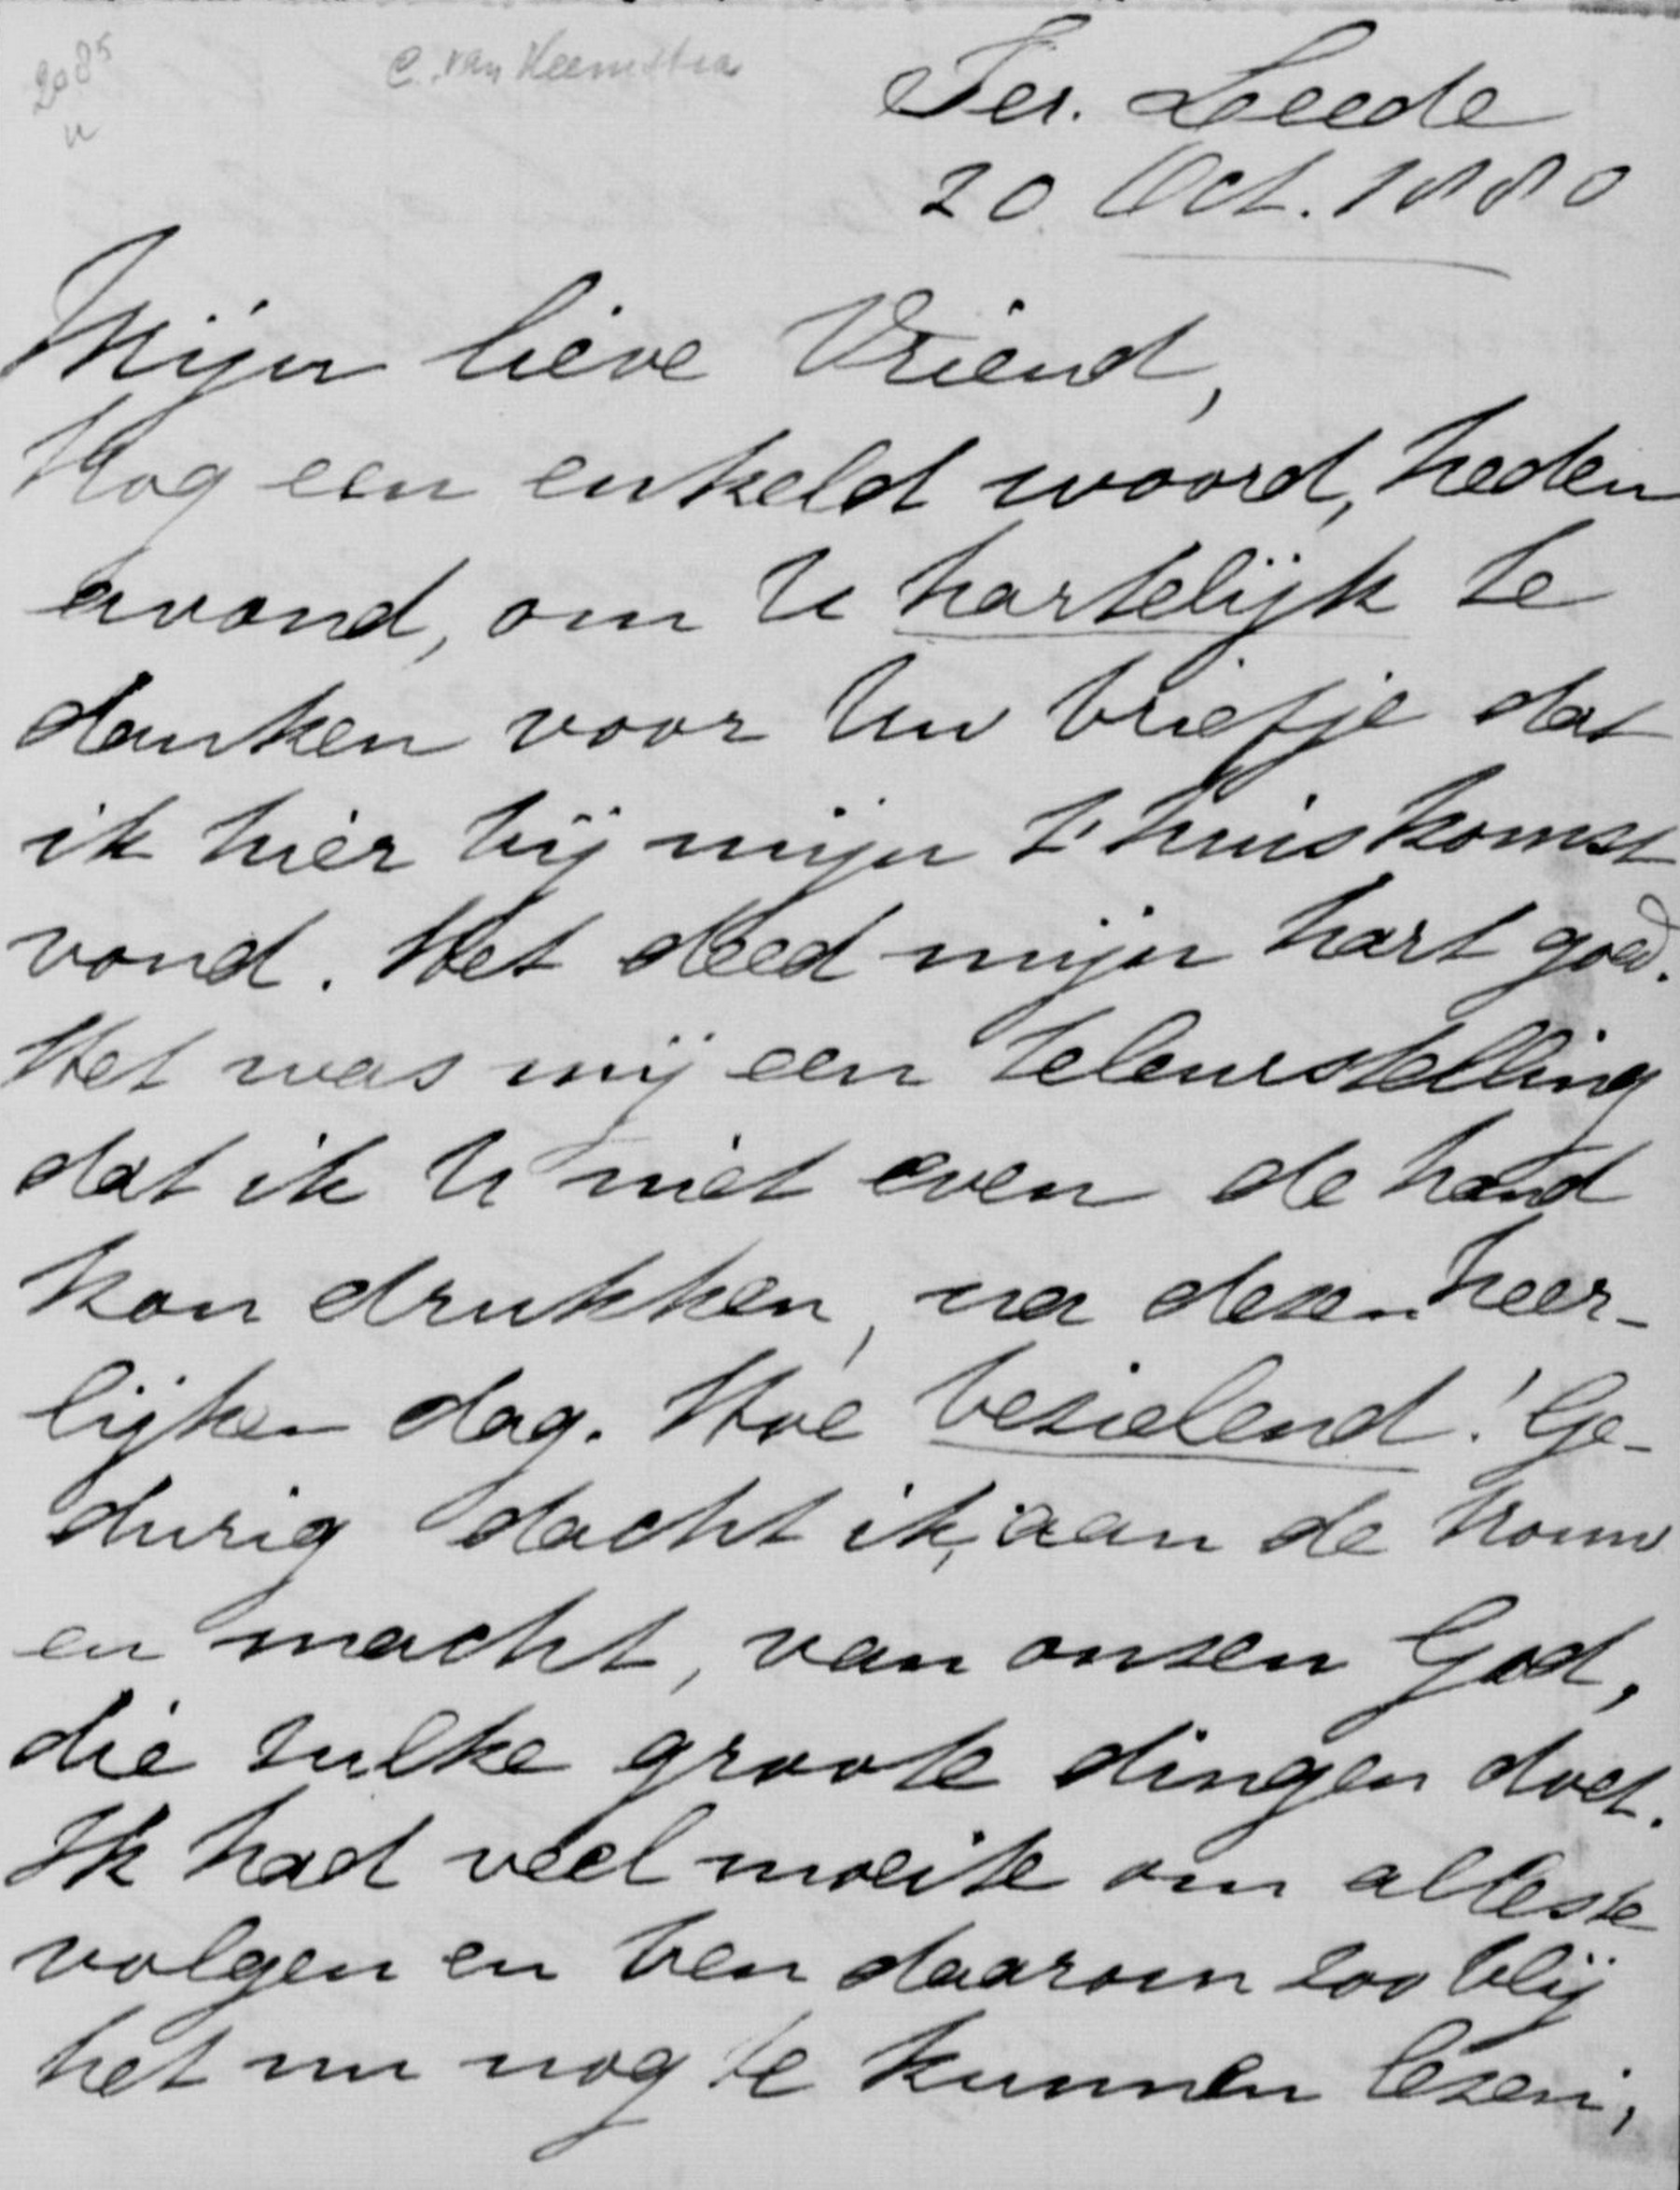 2085
C. van Heemstra
Ter. Leede
20 Oct. 1880
Mijn lieve Vriend,
Nog een enkeld woord, heden
avond, om U hartelijk te
danken voor Uw briefje dat
ik hier bij mijn t'huiskomst
vond. Het deed mijn hart goed.
Het was mij een teleurstelling
dat ik U niet even de hand
kon drukken, na dezen heer-
lijken dag. Hoe bezielend! Ge-
durig dacht ik, aan de trouw
en macht, van onzen God,
die zulke groote dingen doet.
Ik had veel moeite om alles te
volgen en ben daarom zoo blij
het nu nog te kunnen lezen;